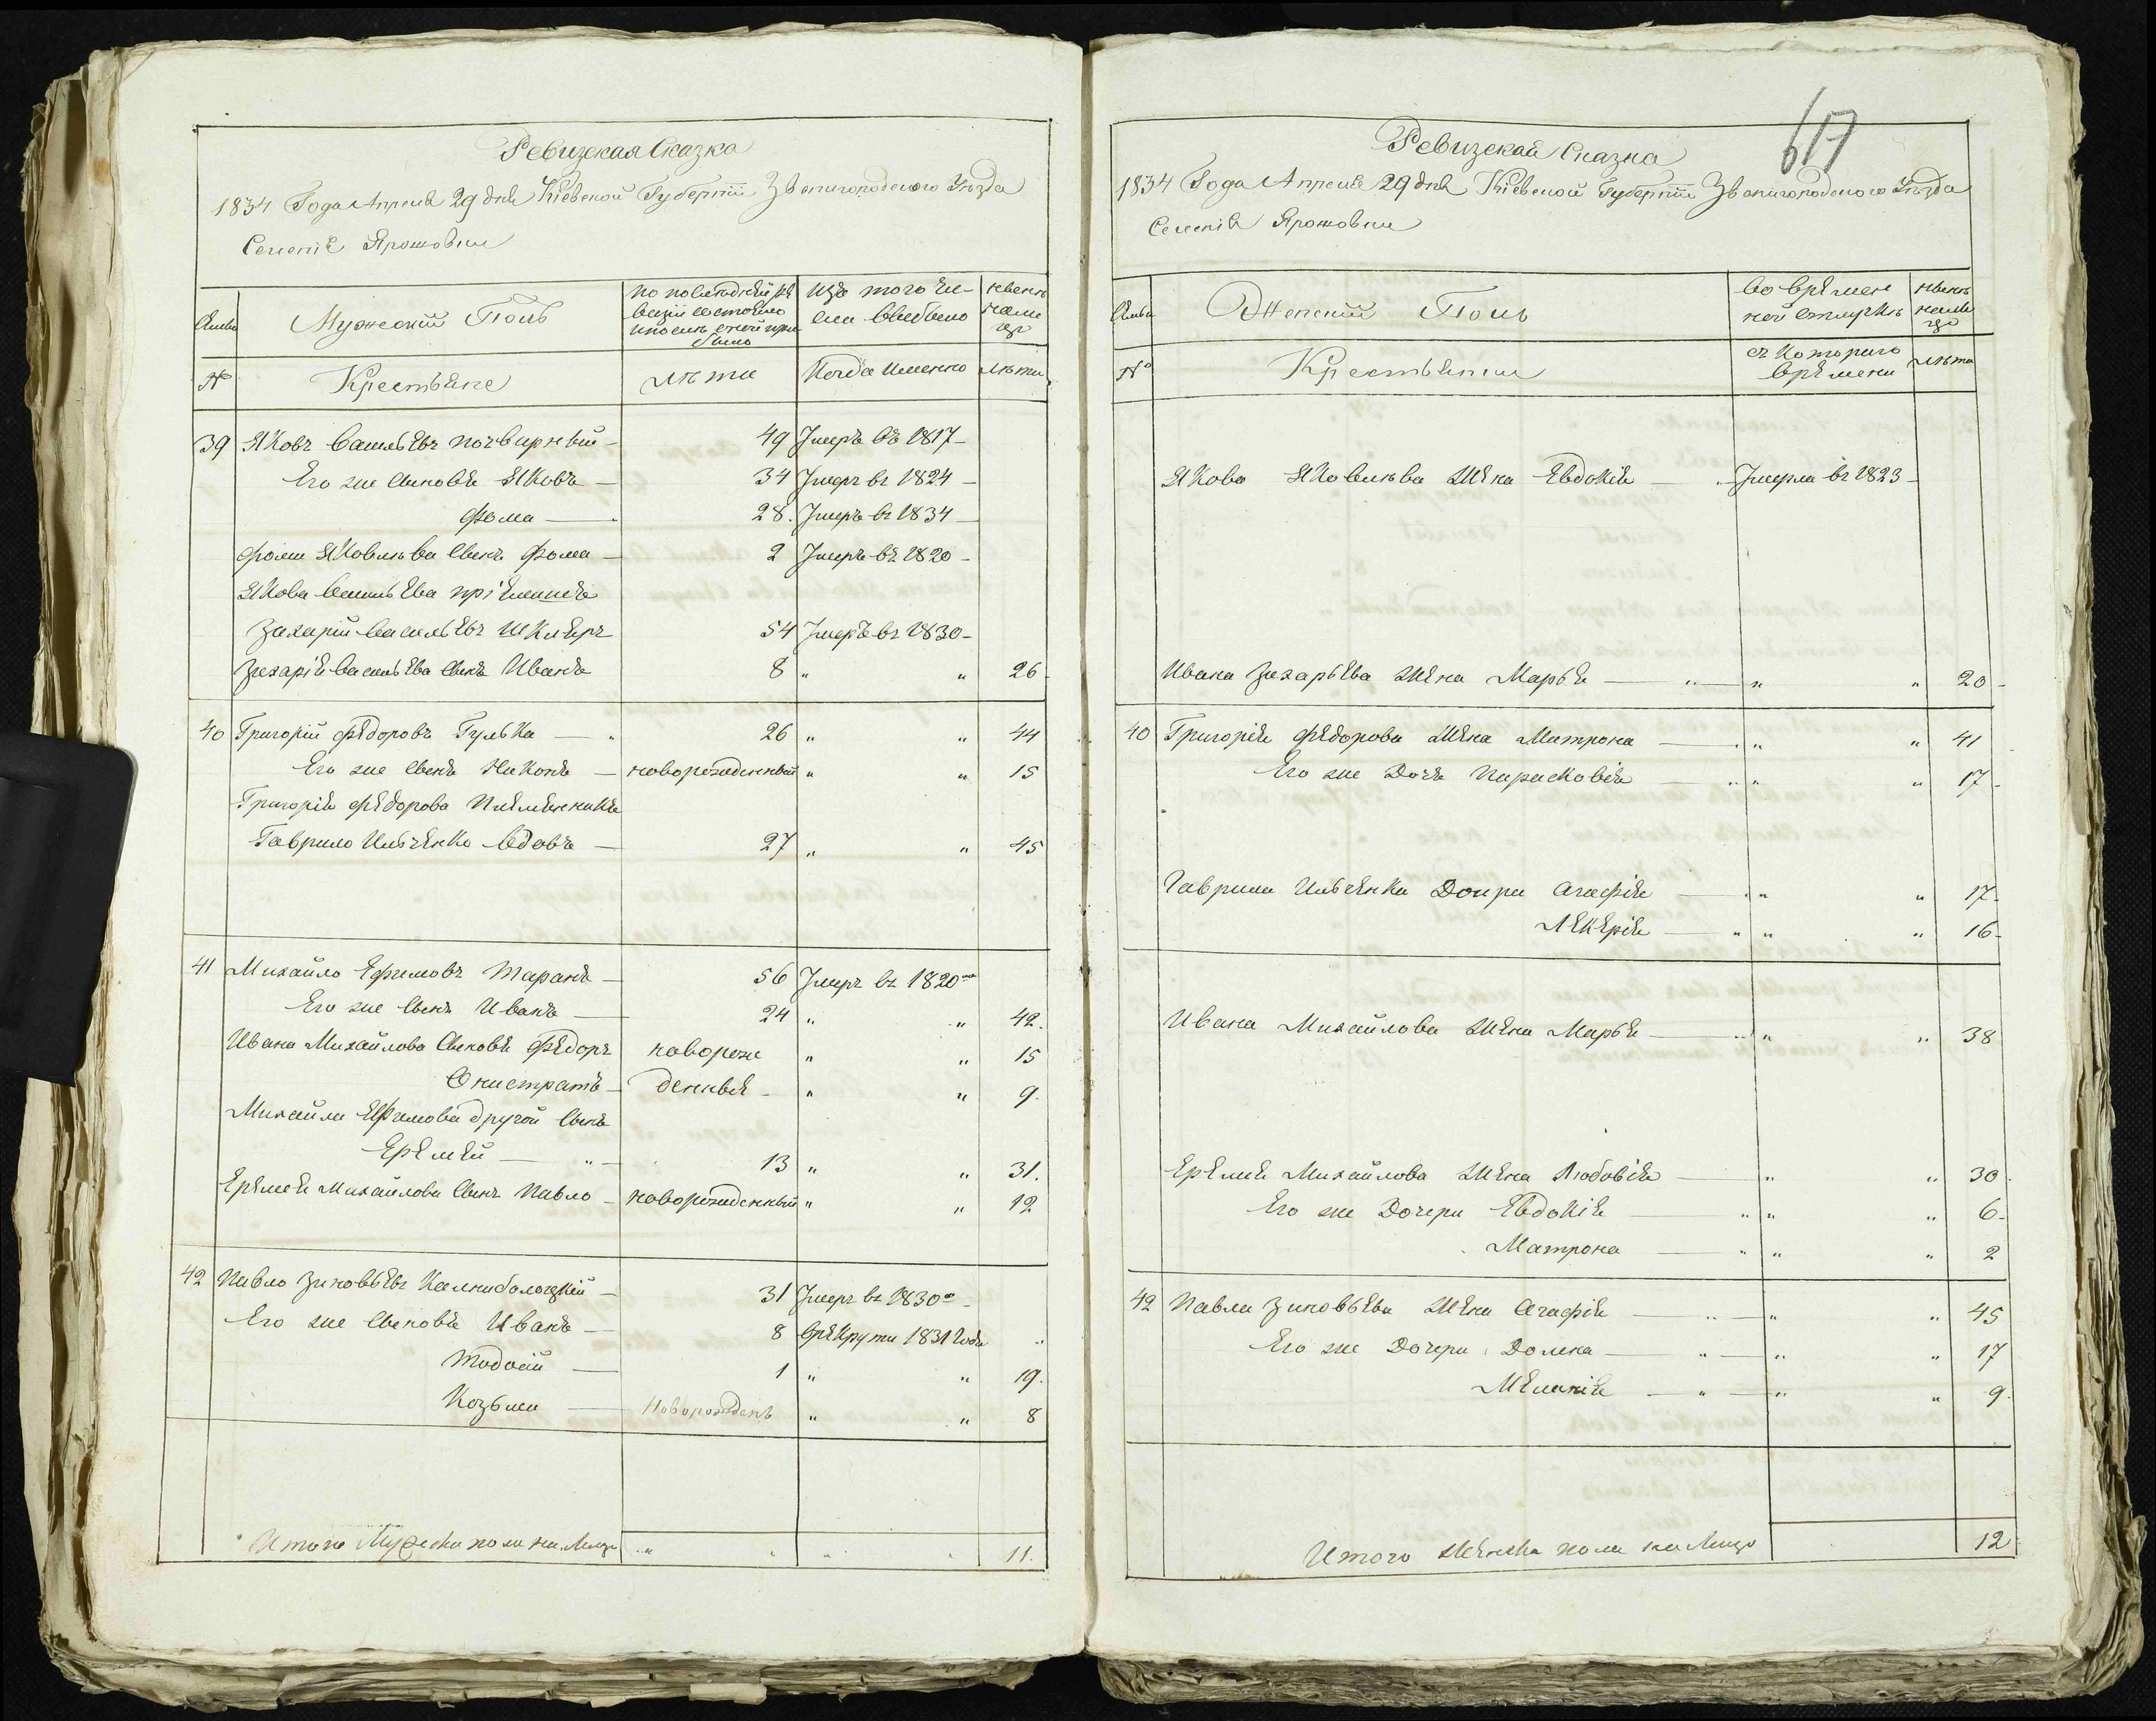 Ревизская Сказка
1834 Года Апреля 29 дня Кіевской Губерніи Звенигородского Уезда
Селенія Ярошовки
Семьи
Мужеский Полъ
по последней ре
визіи состояло
и после оной при
было
изъ того чи-
сла выбыло
ныне
на ли
цо
№
Крестьяне
лета
Когда именно
лета
39 Яковъ Васильевъ почвирный - 49 Умеръ въ 1817 -
Его же сыновья Яковъ - 34 Умеръ въ 1824 -
Фома - 28. Умеръ въ 1834 -
Фомы Яковлева сынъ Фома - 2 Умеръ въ 1820 -
Якова Васильева пріемышъ
Захарій Васильевъ Шкляръ 54 Умеръ въ 1830 -
Захарія Васильева сынъ Иванъ 8 " " 26
40 Григорій Федоровъ Гулька - 26 " " 44
Его же сынъ Никонъ - новорожденный " " 15
Григорія Федорова племенникъ
Гаврило Ильченко вдовъ - 27 " " 45
41 Михайло Ефимовъ Таранъ - 56 Умеръ въ 1820
Его же сынъ Иванъ - 24 " " 42.
Ивана Михайлова сыновья Федоръ новорож " " 15
Онистратъ - денныя - " " 9.
Михайлы Ефимова другой сынъ
Еремей - 13 " " 31.
Еремея Михайлова сынъ Павло - новорожденный " " 12
42 Павло Зиновьевъ Калниболоцкій - 31 Умеръ въ 1830 -
Его же сыновья Иванъ - 8 в рекруты 1831 года "
Тодосій - 1 " " 19.
Козьма - Новорожденъ " " 8
Итого Мужеска пола на лицо 11.
617
Ревизская Сказка
1834 Года Апреля 29 дня Кіевской Губерніи Звенигородского Уезда
Селенія Ярошовки
Семьи
Женский Полъ
во времен
ной отлучке
ныне
на ли
цо
№
Крестьянки
съ которого
времени
лета
Якова Яковлева жена Евдокія - Умерла въ 1823 -
Ивана Захарьева жена Марья - " " 20 -
40 Григорія Федорова жена Матрона - " " 41
Его же дочь Парасковія - " " 17 -
Гаврила Ильченка дочери Агафія - " " 17 -
Лекерія - " " 16 -
Ивана Михайлова жена Марья - " " 38
Еремія Михайлова жена Любовія - " " 30
Его же дочери Евдокія - " " 6 -
Матрона - " " 2
42 Павла Зиновьева жена Агафія - " " 45
Его же дочери Домна - " " 17
Меланія - " " 9
Итого женска пола на лицо 12